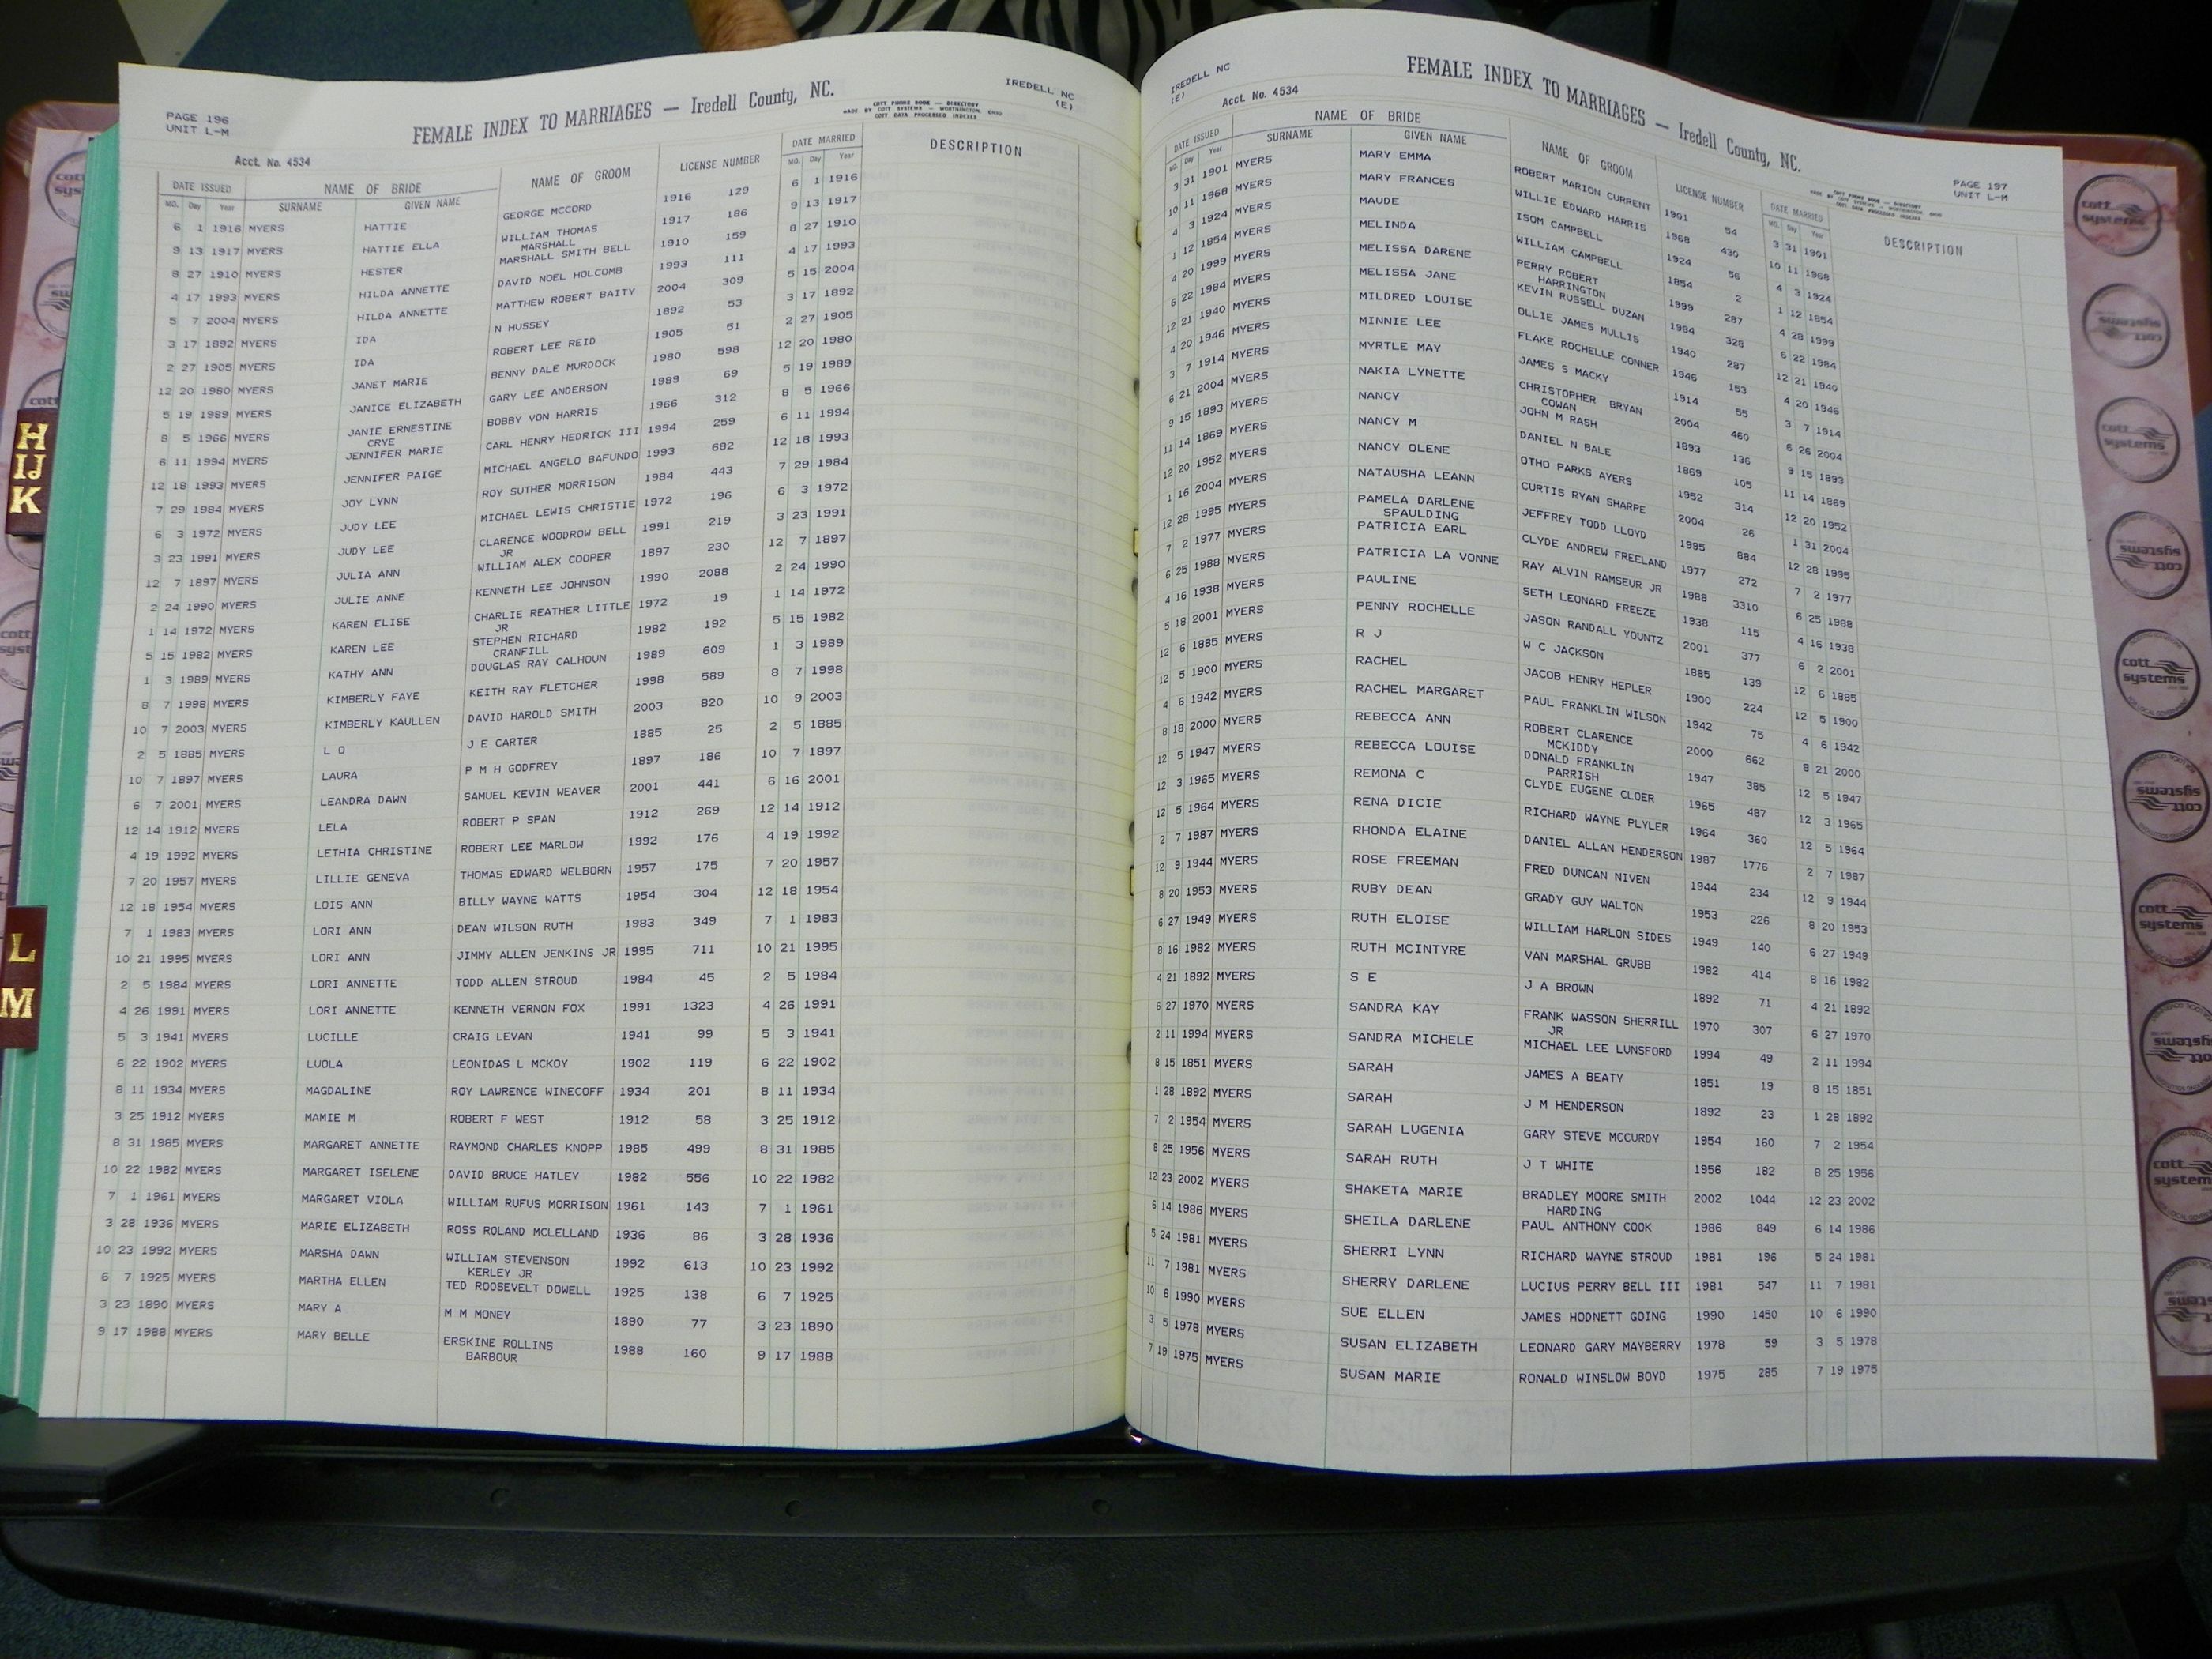 PAGE 196
UNIT L-M
FEMALE INDEX TO MARRIAGES — Iredell County, NC.
COTT PHONE BOOK — DIRECTORY
MADE BY COTT SYSTEMS — WORTHINGTON, OHIO
COTT DATA PROCESSED INDEXES
IREDELL NC
(E)
Acct. No. 4534
DATE ISSUED NAME OF BRIDE NAME OF GROOM LICENSE NUMBER DATE MARRIED DESCRIPTION
MO. Day Year SURNAME GIVEN NAME MO. Day Year
6 1 1916 MYERS HATTIE GEORGE MCCORD 1916 129 6 1 1916
9 13 1917 MYERS HATTIE ELLA WILLIAM THOMAS 1917 186 9 13 1917
MARSHALL
8 27 1910 MYERS HESTER MARSHALL SMITH BELL 1910 159 8 27 1910
4 17 1993 MYERS HILDA ANNETTE DAVID NOEL HOLCOMB 1993 111 4 17 1993
5 7 2004 MYERS HILDA ANNETTE MATTHEW ROBERT BAITY 2004 309 5 15 2004
3 17 1892 MYERS IDA N HUSSEY 1892 53 3 17 1892
2 27 1905 MYERS IDA ROBERT LEE REID 1905 51 2 27 1905
12 20 1980 MYERS JANET MARIE BENNY DALE MURDOCK 1980 598 12 20 1980
5 19 1989 MYERS JANICE ELIZABETH GARY LEE ANDERSON 1989 69 5 19 1989
8 5 1966 MYERS JANIE ERNESTINE BOBBY VON HARRIS 1966 312 8 5 1966
CRYE
6 11 1994 MYERS JENNIFER MARIE CARL HENRY HEDRICK III 1994 259 6 11 1994
12 18 1993 MYERS JENNIFER PAIGE MICHAEL ANGELO BAFUNDO 1993 682 12 18 1993
7 29 1984 MYERS JOY LYNN ROY SUTHER MORRISON 1984 443 7 29 1984
6 3 1972 MYERS JUDY LEE MICHAEL LEWIS CHRISTIE 1972 196 6 3 1972
3 23 1991 MYERS JUDY LEE CLARENCE WOODROW BELL 1991 219 3 23 1991
JR
12 7 1897 MYERS JULIA ANN WILLIAM ALEX COOPER 1897 230 12 7 1897
2 24 1990 MYERS JULIE ANNE KENNETH LEE JOHNSON 1990 2088 2 24 1990
1 14 1972 MYERS KAREN ELISE CHARLIE REATHER LITTLE 1972 19 1 14 1972
JR
5 15 1982 MYERS KAREN LEE STEPHEN RICHARD 1982 192 5 15 1982
CRANFILL
1 3 1989 MYERS KATHY ANN DOUGLAS RAY CALHOUN 1989 609 1 3 1989
8 7 1998 MYERS KIMBERLY FAYE KEITH RAY FLETCHER 1998 589 8 7 1998
10 7 2003 MYERS KIMBERLY KAULLEN DAVID HAROLD SMITH 2003 820 10 9 2003
2 5 1885 MYERS L O J E CARTER 1885 25 2 5 1885
10 7 1897 MYERS LAURA P M H GODFREY 1897 186 10 7 1897
6 7 2001 MYERS LEANDRA DAWN SAMUEL KEVIN WEAVER 2001 441 6 16 2001
12 14 1912 MYERS LELA ROBERT P SPAN 1912 269 12 14 1912
4 19 1992 MYERS LETHIA CHRISTINE ROBERT LEE MARLOW 1992 176 4 19 1992
7 20 1957 MYERS LILLIE GENEVA THOMAS EDWARD WELBORN 1957 175 7 20 1957
12 18 1954 MYERS LOIS ANN BILLY WAYNE WATTS 1954 304 12 18 1954
7 1 1983 MYERS LORI ANN DEAN WILSON RUTH 1983 349 7 1 1983
10 21 1995 MYERS LORI ANN JIMMY ALLEN JENKINS JR 1995 711 10 21 1995
2 5 1984 MYERS LORI ANNETTE TODD ALLEN STROUD 1984 45 2 5 1984
4 26 1991 MYERS LORI ANNETTE KENNETH VERNON FOX 1991 1323 4 26 1991
5 3 1941 MYERS LUCILLE CRAIG LEVAN 1941 99 5 3 1941
6 22 1902 MYERS LUOLA LEONIDAS L MCKOY 1902 119 6 22 1902
8 11 1934 MYERS MAGDALINE ROY LAWRENCE WINECOFF 1934 201 8 11 1934
3 25 1912 MYERS MAMIE M ROBERT F WEST 1912 58 3 25 1912
8 31 1985 MYERS MARGARET ANNETTE RAYMOND CHARLES KNOPP 1985 499 8 31 1985
10 22 1982 MYERS MARGARET ISELENE DAVID BRUCE HATLEY 1982 556 10 22 1982
7 1 1961 MYERS MARGARET VIOLA WILLIAM RUFUS MORRISON 1961 143 7 1 1961
3 28 1936 MYERS MARIE ELIZABETH ROSS ROLAND MCLELLAND 1936 86 3 28 1936
10 23 1992 MYERS MARSHA DAWN WILLIAM STEVENSON 1992 613 10 23 1992
KERLEY JR
6 7 1925 MYERS MARTHA ELLEN TED ROOSEVELT DOWELL 1925 138 6 7 1925
3 23 1890 MYERS MARY A M M MONEY 1890 77 3 23 1890
9 17 1988 MYERS MARY BELLE ERSKINE ROLLINS 1988 160 9 17 1988
BARBOUR
IREDELL NC
(E)
FEMALE INDEX TO MARRIAGES — Iredell County, NC.
PAGE 197
UNIT L-M
Acct. No. 4534
DATE ISSUED NAME OF BRIDE NAME OF GROOM LICENSE NUMBER DATE MARRIED DESCRIPTION
MO. Day Year SURNAME GIVEN NAME MO. Day Year
3 31 1901 MYERS MARY EMMA ROBERT MARION CURRENT 1901 54 3 31 1901
10 11 1968 MYERS MARY FRANCES WILLIE EDWARD HARRIS 1968 430 10 11 1968
4 3 1924 MYERS MAUDE ISOM CAMPBELL 1924 56 4 3 1924
1 12 1854 MYERS MELINDA WILLIAM CAMPBELL 1854 2 1 12 1854
4 20 1999 MYERS MELISSA DARENE PERRY ROBERT 1999 287 4 28 1999
HARRINGTON
6 22 1984 MYERS MELISSA JANE KEVIN RUSSELL DUZAN 1984 328 6 22 1984
12 21 1940 MYERS MILDRED LOUISE OLLIE JAMES MULLIS 1940 287 12 21 1940
4 20 1946 MYERS MINNIE LEE FLAKE ROCHELLE CONNER 1946 153 4 20 1946
3 7 1914 MYERS MYRTLE MAY JAMES S MACKY 1914 55 3 7 1914
6 21 2004 MYERS NAKIA LYNETTE CHRISTOPHER BRYAN 2004 460 6 26 2004
COWAN
9 15 1893 MYERS NANCY JOHN M RASH 1893 136 9 15 1893
11 14 1869 MYERS NANCY M DANIEL N BALE 1869 105 11 14 1869
12 20 1952 MYERS NANCY OLENE OTHO PARKS AYERS 1952 314 12 20 1952
1 16 2004 MYERS NATAUSHA LEANN CURTIS RYAN SHARPE 2004 26 1 31 2004
12 28 1995 MYERS PAMELA DARLENE JEFFREY TODD LLOYD 1995 884 12 28 1995
SPAULDING
7 2 1977 MYERS PATRICIA EARL CLYDE ANDREW FREELAND 1977 272 7 2 1977
6 25 1988 MYERS PATRICIA LA VONNE RAY ALVIN RAMSEUR JR 1988 3310 6 25 1988
4 16 1938 MYERS PAULINE SETH LEONARD FREEZE 1938 115 4 16 1938
5 18 2001 MYERS PENNY ROCHELLE JASON RANDALL YOUNTZ 2001 377 6 2 2001
12 6 1885 MYERS R J W C JACKSON 1885 139 12 6 1885
12 5 1900 MYERS RACHEL JACOB HENRY HEPLER 1900 224 12 5 1900
4 6 1942 MYERS RACHEL MARGARET PAUL FRANKLIN WILSON 1942 75 4 6 1942
8 18 2000 MYERS REBECCA ANN ROBERT CLARENCE 2000 662 8 21 2000
MCKIDDY
12 5 1947 MYERS REBECCA LOUISE DONALD FRANKLIN 1947 385 12 5 1947
PARRISH
12 3 1965 MYERS REMONA C CLYDE EUGENE CLOER 1965 487 12 3 1965
12 5 1964 MYERS RENA DICIE RICHARD WAYNE PLYLER 1964 360 12 5 1964
2 7 1987 MYERS RHONDA ELAINE DANIEL ALLAN HENDERSON 1987 1776 2 7 1987
12 9 1944 MYERS ROSE FREEMAN FRED DUNCAN NIVEN 1944 234 12 9 1944
8 20 1953 MYERS RUBY DEAN GRADY GUY WALTON 1953 226 8 20 1953
6 27 1949 MYERS RUTH ELOISE WILLIAM HARLON SIDES 1949 140 6 27 1949
8 16 1982 MYERS RUTH MCINTYRE VAN MARSHAL GRUBB 1982 414 8 16 1982
4 21 1892 MYERS S E J A BROWN 1892 71 4 21 1892
6 27 1970 MYERS SANDRA KAY FRANK WASSON SHERRILL 1970 307 6 27 1970
JR
2 11 1994 MYERS SANDRA MICHELE MICHAEL LEE LUNSFORD 1994 49 2 11 1994
8 15 1851 MYERS SARAH JAMES A BEATY 1851 19 8 15 1851
1 28 1892 MYERS SARAH J M HENDERSON 1892 23 1 28 1892
7 2 1954 MYERS SARAH LUGENIA GARY STEVE MCCURDY 1954 160 7 2 1954
8 25 1956 MYERS SARAH RUTH J T WHITE 1956 182 8 25 1956
12 23 2002 MYERS SHAKETA MARIE BRADLEY MOORE SMITH 2002 1044 12 23 2002
HARDING
6 14 1986 MYERS SHEILA DARLENE PAUL ANTHONY COOK 1986 849 6 14 1986
5 24 1981 MYERS SHERRI LYNN RICHARD WAYNE STROUD 1981 196 5 24 1981
11 7 1981 MYERS SHERRY DARLENE LUCIUS PERRY BELL III 1981 547 11 7 1981
10 6 1990 MYERS SUE ELLEN JAMES HODNETT GOING 1990 1450 10 6 1990
3 5 1978 MYERS SUSAN ELIZABETH LEONARD GARY MAYBERRY 1978 59 3 5 1978
7 19 1975 MYERS SUSAN MARIE RONALD WINSLOW BOYD 1975 285 7 19 1975
H
IJ
K
L
M
cott
systems
cott
systems
cott
systems
cott
systems